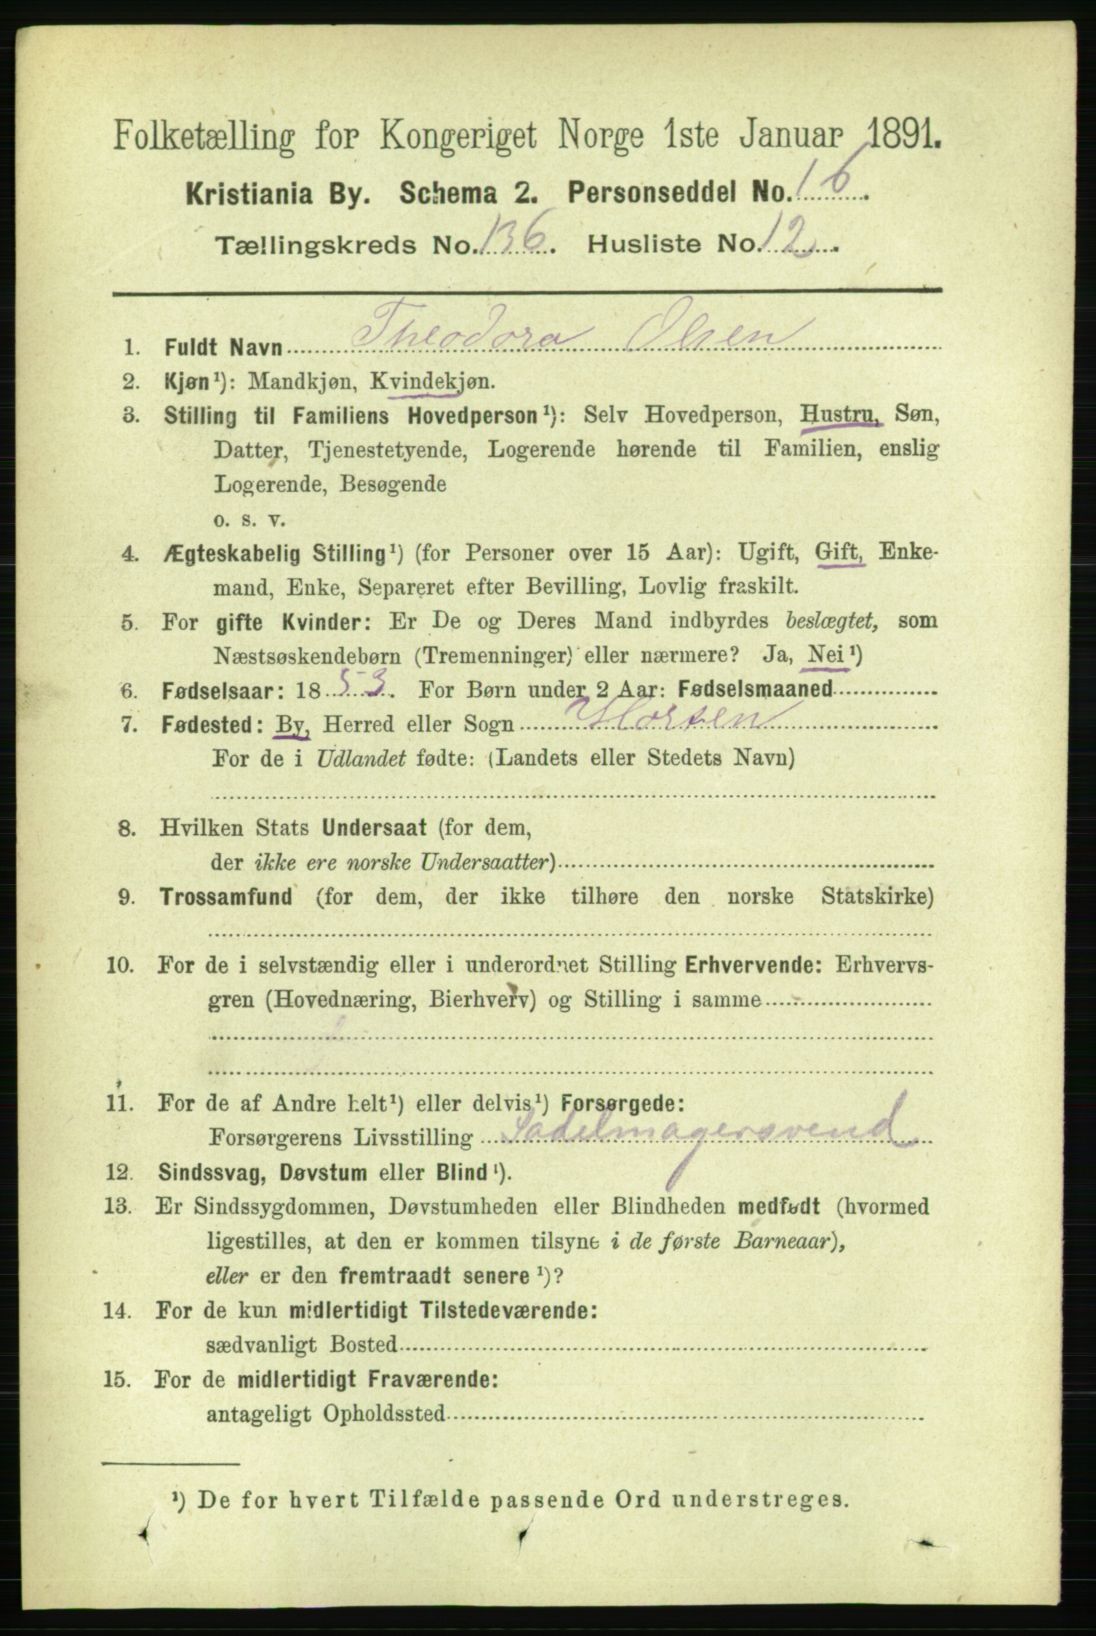 Folketælling for Kongeriget Norge 1ste Januar 1891.
Kristiania By. Schema 2. Personseddel No. 16.
Tællingskreds No. 136. Husliste No. 12.
1. Fuldt Navn Theodora Olsen
2. Kjøn¹): Mandkjøn, Kvindekjøn.
3. Stilling til Familiens Hovedperson¹): Selv Hovedperson, Hustru, Søn,
Datter, Tjenestetyende, Logerende hørende til Familien, enslig
Logerende, Besøgende
o. s. v.
4. Ægteskabelig Stilling¹) (for Personer over 15 Aar): Ugift, Gift, Enke-
mand, Enke, Separeret efter Bevilling, Lovlig fraskilt.
5. For gifte Kvinder: Er De og Deres Mand indbyrdes beslægtet, som
Næstsøskendebørn (Tremenninger) eller nærmere? Ja, Nei¹)
6. Fødselsaar: 1853. For Børn under 2 Aar: Fødselsmaaned
7. Fødested: By, Herred eller Sogn Horten
For de i Udlandet fødte: (Landets eller Stedets Navn)
8. Hvilken Stats Undersaat (for dem,
der ikke ere norske Undersaatter)
9. Trossamfund (for dem, der ikke tilhøre den norske Statskirke)
10. For de i selvstændig eller i underordnet Stilling Erhvervende: Erhvervs-
gren (Hovednæring, Bierhverv) og Stilling i samme
11. For de af Andre helt¹) eller delvis¹) Forsørgede:
Forsørgerens Livsstilling Sadelmagersvend
12. Sindssvag, Døvstum eller Blind¹).
13. Er Sindssygdommen, Døvstumheden eller Blindheden medfødt (hvormed
ligestilles, at den er kommen tilsyne i de første Barneaar),
eller er den fremtraadt senere¹)?
14. For de kun midlertidigt Tilstedeværende:
sædvanligt Bosted
15. For de midlertidigt Fraværende:
antageligt Opholdssted
¹) De for hvert Tilfælde passende Ord understreges.